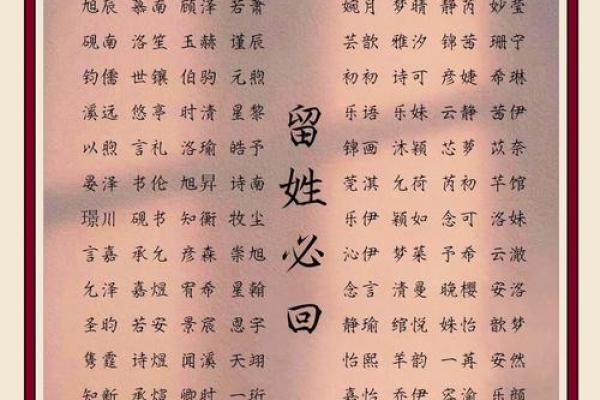 旭辰 慕南 顾泽 若萧
砚南 洛笙 玉赫 谨辰
钧儒 世镶 伯驹 元煦
溪远 悠亭 时清 星黎
以煦 言礼 洛瑜 皓予
晏泽 书伦 旭昇 诗南
璟川 砚书 知衡 牧尘
言嘉 承允 彦森 崇旭
允泽 嘉煜 宥希 星翰
圣昀 若安 景宸 思宇
隽霆 诗煜 闻溪 天翊
承煊 卿时 一珩
留姓必回
婉月 梦晴 静芮 妙莹
芸歆 雅汐 锦茜 珊宁
初初 诗可 彦婕 希琳
乐语 乐姝 云静 茜伊
锦画 沐颖 芯萝 苡奈
莞淇 允荷 芮初 芊馆
乐伊 颖如 念可 洛姝
沁伊 梦菜 予希 云澈
念言 清曼 晚樱 安洛
静瑜 绾悦 姝怡 歆梦
怡熙 羊韵 一苒 安然
嘉怡 乔伊 容渝 乐颜